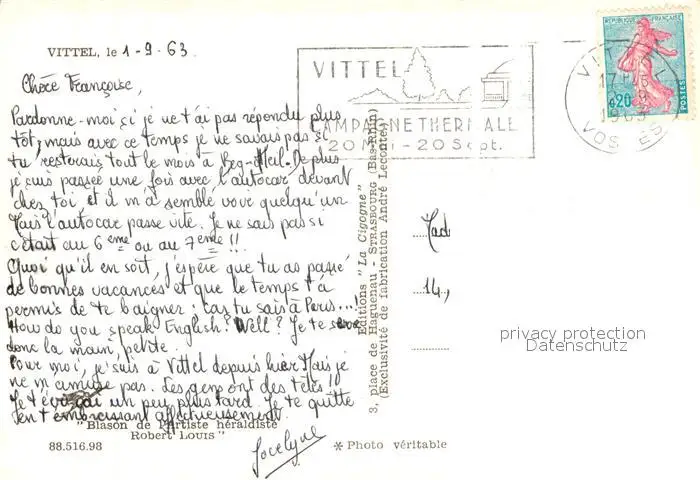 VITTEL, le 1-9-63.
Chère Françoise,
Pardonne-moi si je ne t'ai pas répondu plus
tôt, mais avec ce temps je ne savais pas si
tu resterais tout le mois à Beg-Meil. De plus
je suis passée une fois avec l'autocar devant
chez toi, et il m'a semblé voir quelqu'un.
Mais l'autocar passe vite. Je ne sais pas si
c'était au 6ème ou au 7ème !!
Quoi qu'il en soit, j'espère que tu as passé
de bonnes vacances et que le temps t'a
permis de te baigner; car tu sais à Paris...!
How do you speak English? Well? Je te serre
donc la main, petite.
Pour moi, je suis à Vittel depuis hier. Mais je
ne m'amuse pas. Les gens ont des têtes !!
Je t'écrirai un peu plus tard. Je te quitte
en t'embrassant affectueusement.
Jocelyne
"Blason de l'artiste héraldiste
Robert LOUIS"
88.516.98
* Photo véritable
Editions "La Cigogne"
3, place de Haguenau - STRASBOURG (Bas-Rhin)
(Exclusivité de fabrication André Leconte)
VITTEL
CAMPAGNE THERMALE
20 Mai - 20 Sept.
VITTEL
17H
1963
VOSGES
REPUBLIQUE FRANÇAISE
0,20
POSTES
Mad
14,
privacy protection
Datenschutz